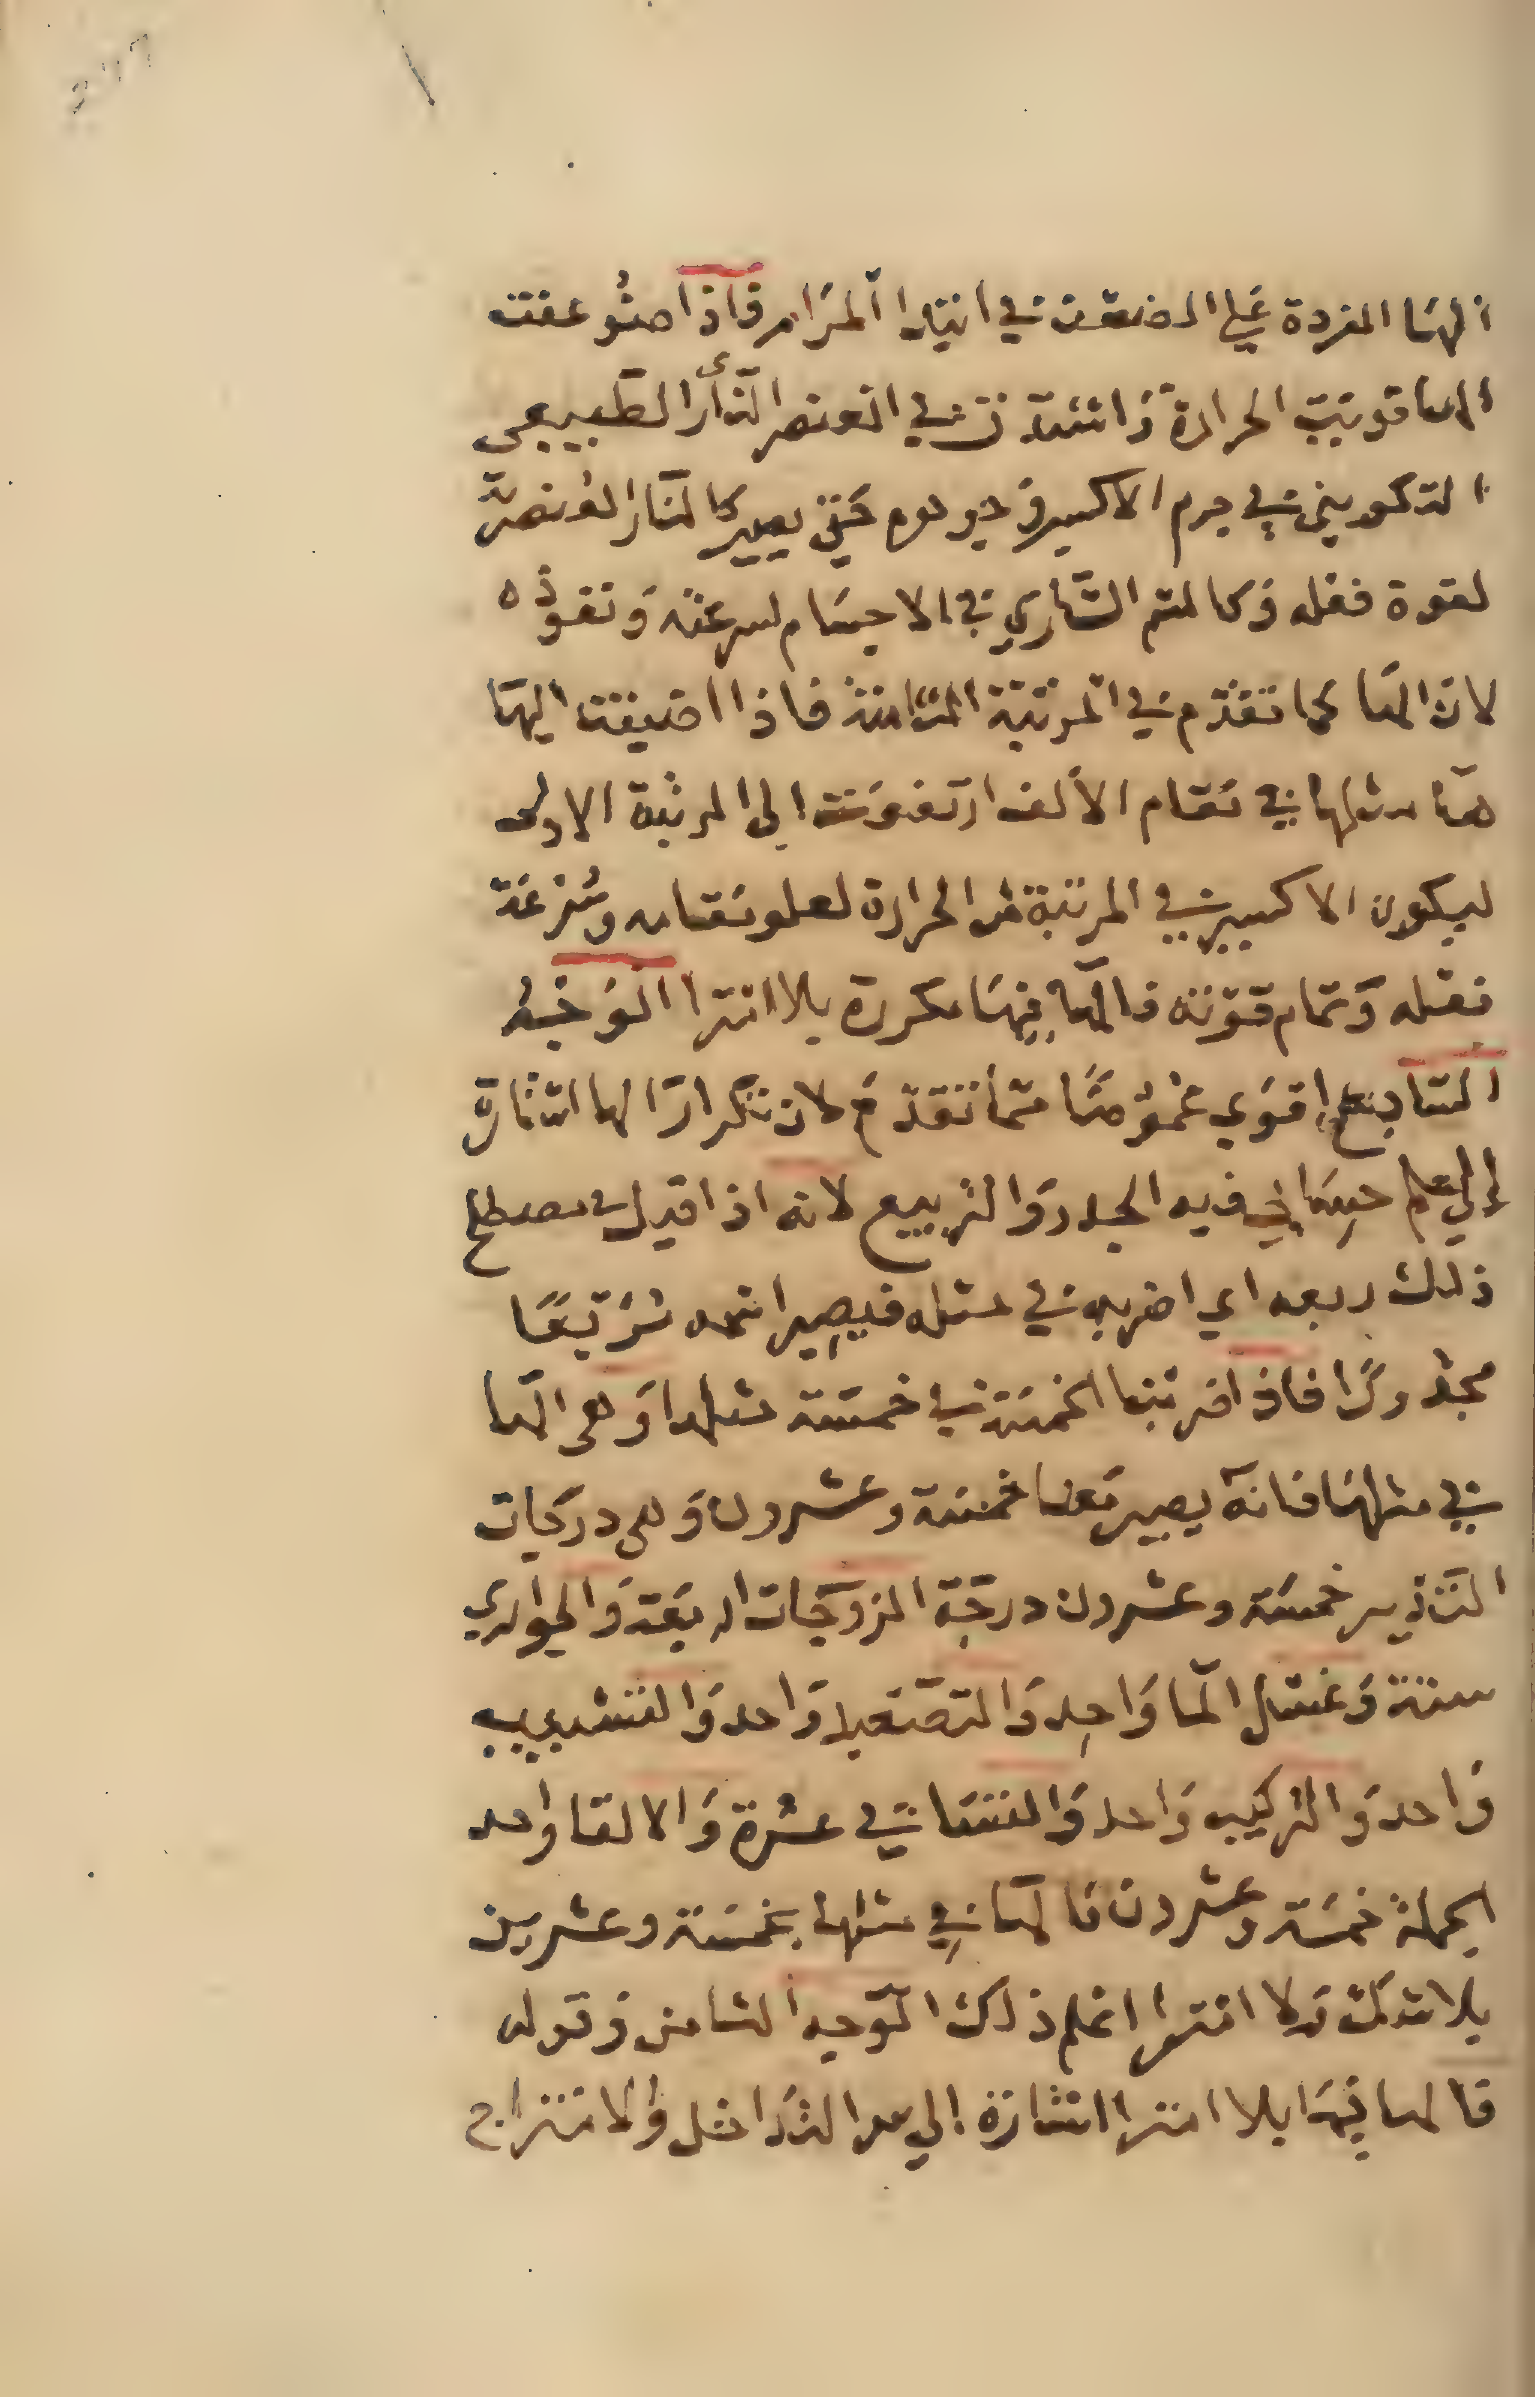 الهَا المفردة عَلي الضعف في ابتدا المرَام فاذا ضوعفت
الها قويت الحرارة وَاشتدت في العنصر النارى الطبيعى
التكوينى في جرم الاكسير وَجوهره حَتي يصير كالنار العنصرية
لقوة فعله وَكالسم السَّاري في الاجسَام لسرعته وَنفوذه
لان الها كما تقدم في المرتبة الثامنة فاذا اضيفت اليهَا
هَا مثلها في مَقام الألف ارتفعَت الي المرتبة الاولى
ليكون الاكسير في المرتبة من الحرارة لعلو مَقامه وسُرعَة
فعله وَتمام قوته فالها فيهَا مكررة بلا امترا الوَجْه
السَّابع اقوَي غمُوضًا ممَّا تقدَّمَ لان تكرارَ الها اشَارة
إلي علم حسَابي فيه الجدر وَالتربيع لانه اذا قيل في مصطلح
ذلك ربعه اي اضربه في مثله فيصير اسمه مُرَبَّعًا
مجدورًا فاذا ضربنا الخمسَة في خمسَة مثلها وَهى الها
في مثلهَا فانه يصير مَعنا خمسَة وعشرون وَهى درجَات
التدبير خمسَة وعشرون درجَة المزوجَات اربعَة وَالجواري
ستة وَغسل الما وَاحد وَالتصعيد وَاحد وَالتشبيب
وَاحد وَالتركيب وَاحد وَالتسَاقي عشرة وَالالقا واحد
الجملة خمسَة وعشرون فالها في مثلها بخمسَة وعشرين
بلا شك وَلا امترا اعلم ذلك الوجه الثامن وَقوله
فالها فيهَا بلا امترا اشارة الي هدا التدَاخل وَالامتزاج